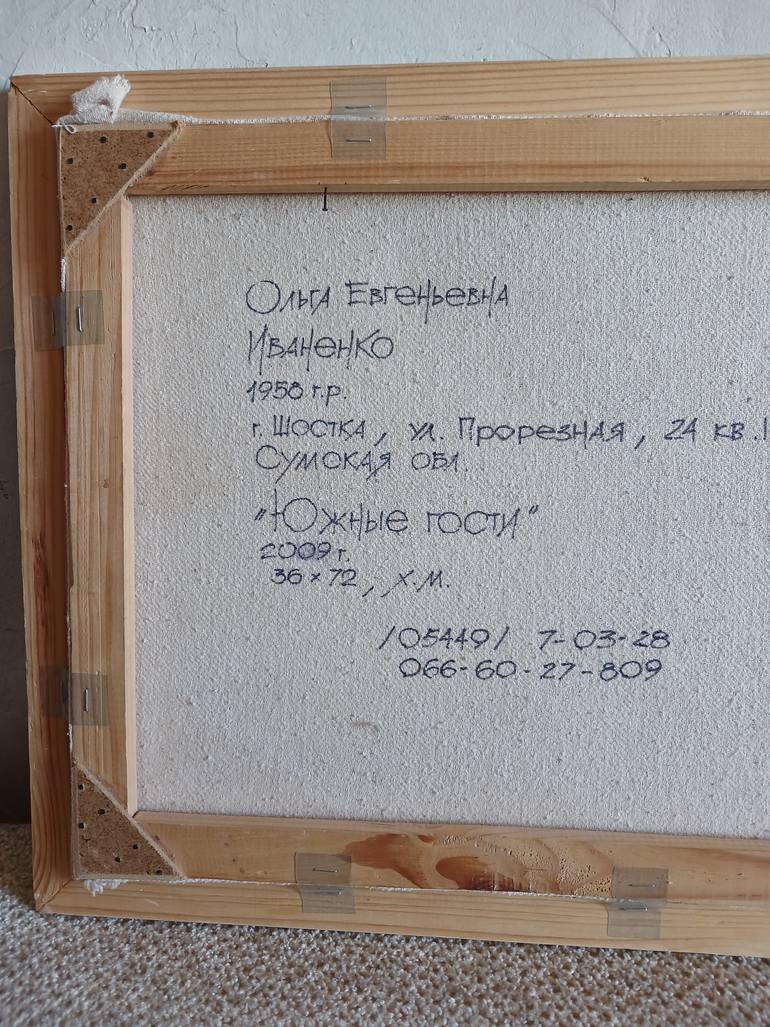 Ольга Евгеньевна
Иваненко
1958 г.р.
г. Шостка, ул. Прорезная, 24 кв.
Сумская обл.
"Южные гости"
2009 г.
36 × 72, х.м.
/05449/ 7-03-28
066-60-27-809